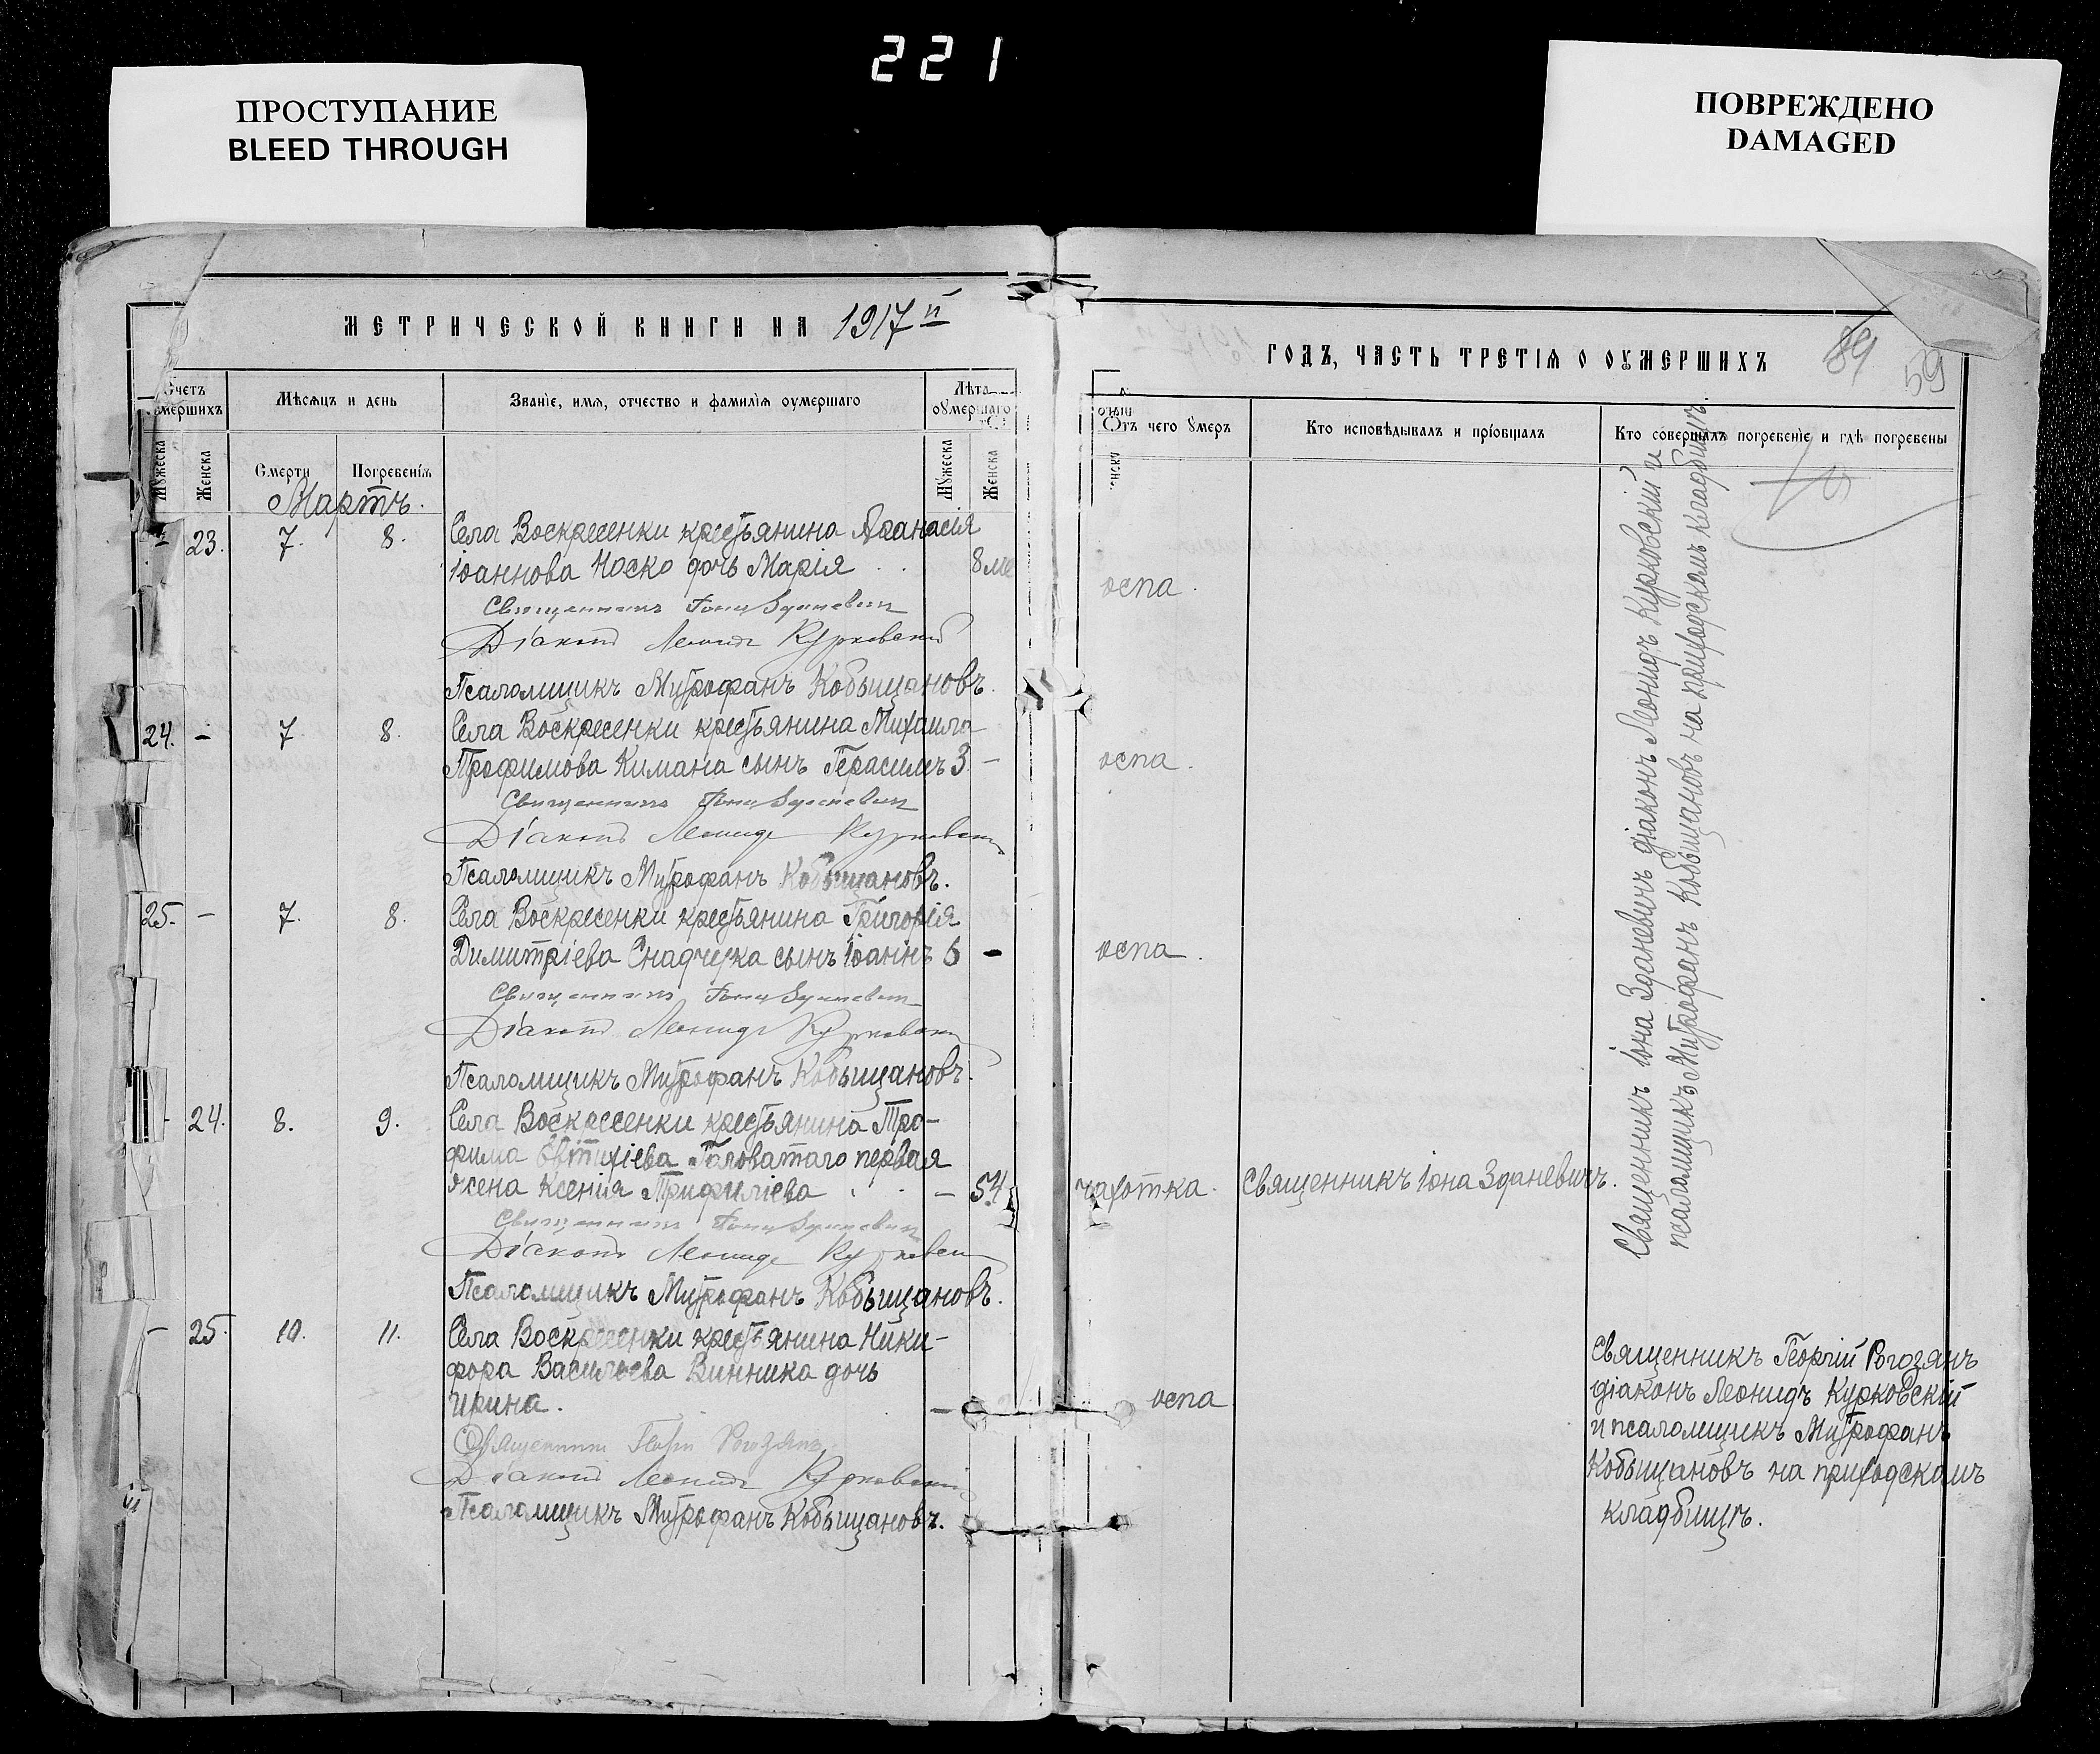 221
ПРОСТУПАНИЕ
BLEED THROUGH
ПОВРЕЖДЕНО
DAMAGED
МЕТРИЧЕСКОЙ КНИГИ НА 1917 й
Счетъ умершихъ
Мѣсяцъ и день
Званіе, имя, отчество и фамилія оумершаго
Лѣта оумершаго
Мужеска
Женска
Смерти
Погребенія
Мужеска
Женска
Мартъ.
23. 7. 8. Села Воскресенки крестьянина Аѳанасія
Іоаннова Носко дочь Марія 8 ме
Священникъ Іона Зданевич
Діаконъ Леонидъ Курковскій
Псаломщикъ Митрофанъ Кобыщановъ.
24. - 7 8. Села Воскресенки крестьянина Михаила
Трофимова Кимана сынъ Герасимъ 3 -
Священникъ Іона Зданевич
Діаконъ Леонидъ Курковскій
Псаломщикъ Митрофанъ Кобыщановъ.
25. - 7. 8. Села Воскресенки крестьянина Григорія
Димитріева сынъ Іоаннъ -
Священникъ Іона Зданевич
Діаконъ Леонидъ Курковскій
Псаломщикъ Митрофанъ Кобыщановъ.
- 24. 8. 9. Села Воскресенки крестьянина Тро-
фима Евтихіева Головатаго первая
жена Ксенія Трифиліева - 54
Священникъ Іона Зданевич
Діаконъ Леонидъ Курковскій
Псаломщикъ Митрофанъ Кобыщановъ.
- 25. 10. 11. Села Воскресенки крестьянина Ники-
фора Васильева Винника дочь
Ирина. -
Священникъ Рогозянъ
Діаконъ Леонидъ Курковскій
Псаломщикъ Митрофанъ Кобыщановъ.
ГОДЪ, ЧАСТЬ ТРЕТІЯ О ОУМЕРШИХЪ
89
59
Отъ чего умеръ
Кто исповѣдывалъ и пріобщалъ
Кто совершалъ погребеніе и гдѣ погребены
оспа.
оспа.
оспа.
чахотка. Священникъ Іона Зданевичъ.
Священникъ Іона Зданевичъ діаконъ Леонидъ Курковскій и
псаломщикъ Митрофанъ Кобыщановъ на приходскомъ кладбищѣ.
оспа
Священникъ Георгій Рогозянъ
діаконъ Леонидъ Курковскій
и псаломщикъ Митрофанъ
Кобыщановъ на приходскомъ
кладбищѣ.